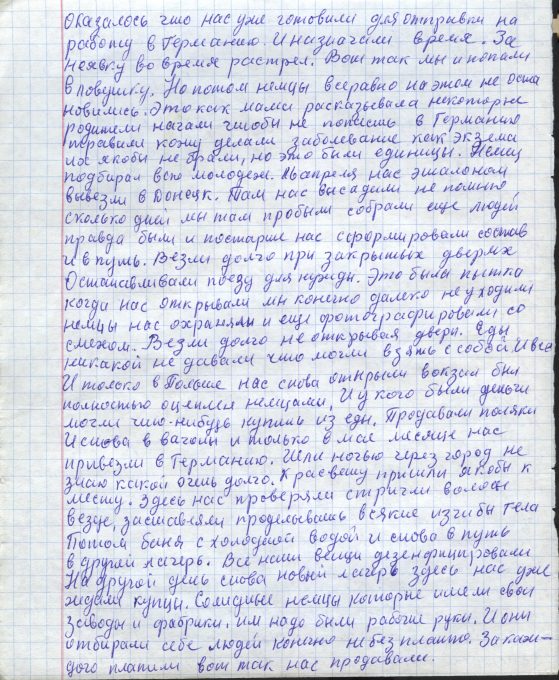 Оказалось что нас уже готовили для отправки на
работу в Германию. И назначали время. За
неявку во время растрел. Вот так мы и попали
в ловушку. Но потом немцы всеравно на этом не оста
новились. Это как мами расказывала некоторые
родители начали чтобы не попасть в Германию
травили кожу делали заболевание как экзема
их якобы не брали, но это были единицы. Немец
подбирал всю молодежь. апреля нас эшалоном
вывезли в Донецк. Там нас высадили не помню
сколько дней мы там пробыли собрали еще людей
правда были и постарше нас сформировали состав
и в путь. Везли долго при закрытых дверях
Останавливали поезд для нужди. Это была пытка
когда нас открывали мы конечно далеко не уходили
немцы нас охраняли и еще фотографировали со
смехом. Везли долго не открывая двери. Еды
никакой не давали что могли взять с собой и все
И только в Польше нас снова открыли вокзал был
полностью оцеплен немцами, И у кого были деньги
могли что-нибудь купить из еды. Продавали поляки
И снова в вагоны и только в мае месяце нас
привезли в Германию. Шли ночью через город не
знаю какой очень долго. К расвету пришли якобы к
месту. Здесь нас проверяли стригли волосы
везде, заставляли проделывать всякие изгибы тела
Потом баня с холодной водой и снова в путь
в другой лагерь. Все наши вещи дезенфицировали
На другой день снова новый лагерь здесь нас уже
ждали купцы. Солидные немцы которые имели свои
заводы и фабрики. им надо были рабочие руки. И они
отбирали себе людей конечно не без платно. За каж-
дого платили вот так нас продавали.